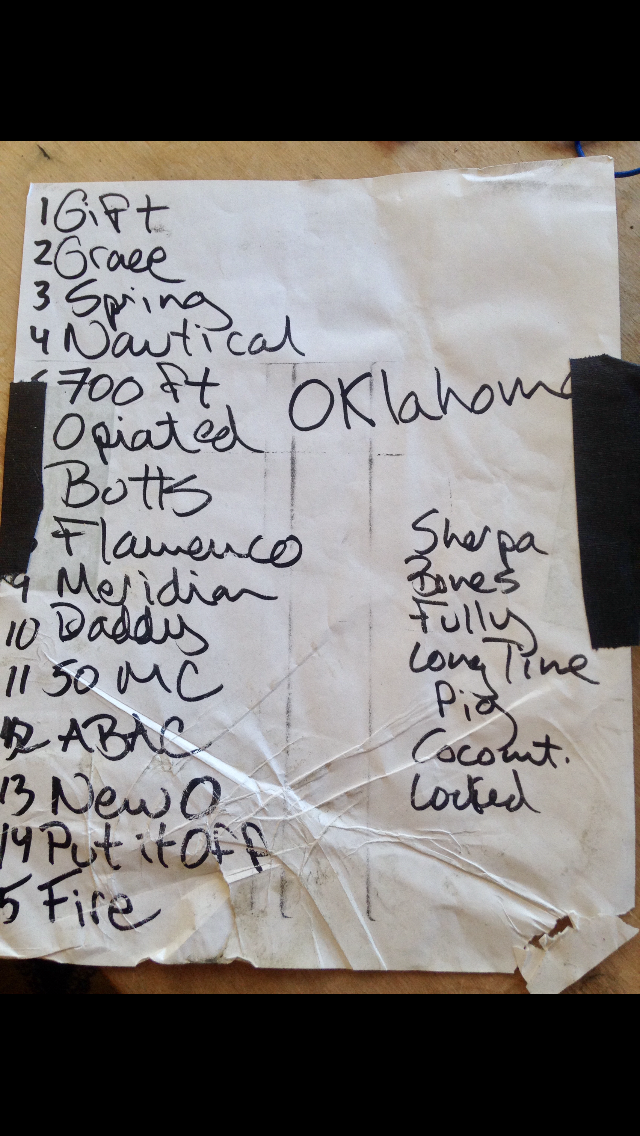 1 Gift
2 Grace
3 Spring
4 Nautical
700 ft
Oklahoma
Opiated
Botts
Flamenco
9 Meridian
10 Daddy
11 50 MC
12 ABAC
13 New O
14 Put it Off
5 Fire
Sherpa
Bones
Fully
Long Time
Pig
Coconut.
Locked